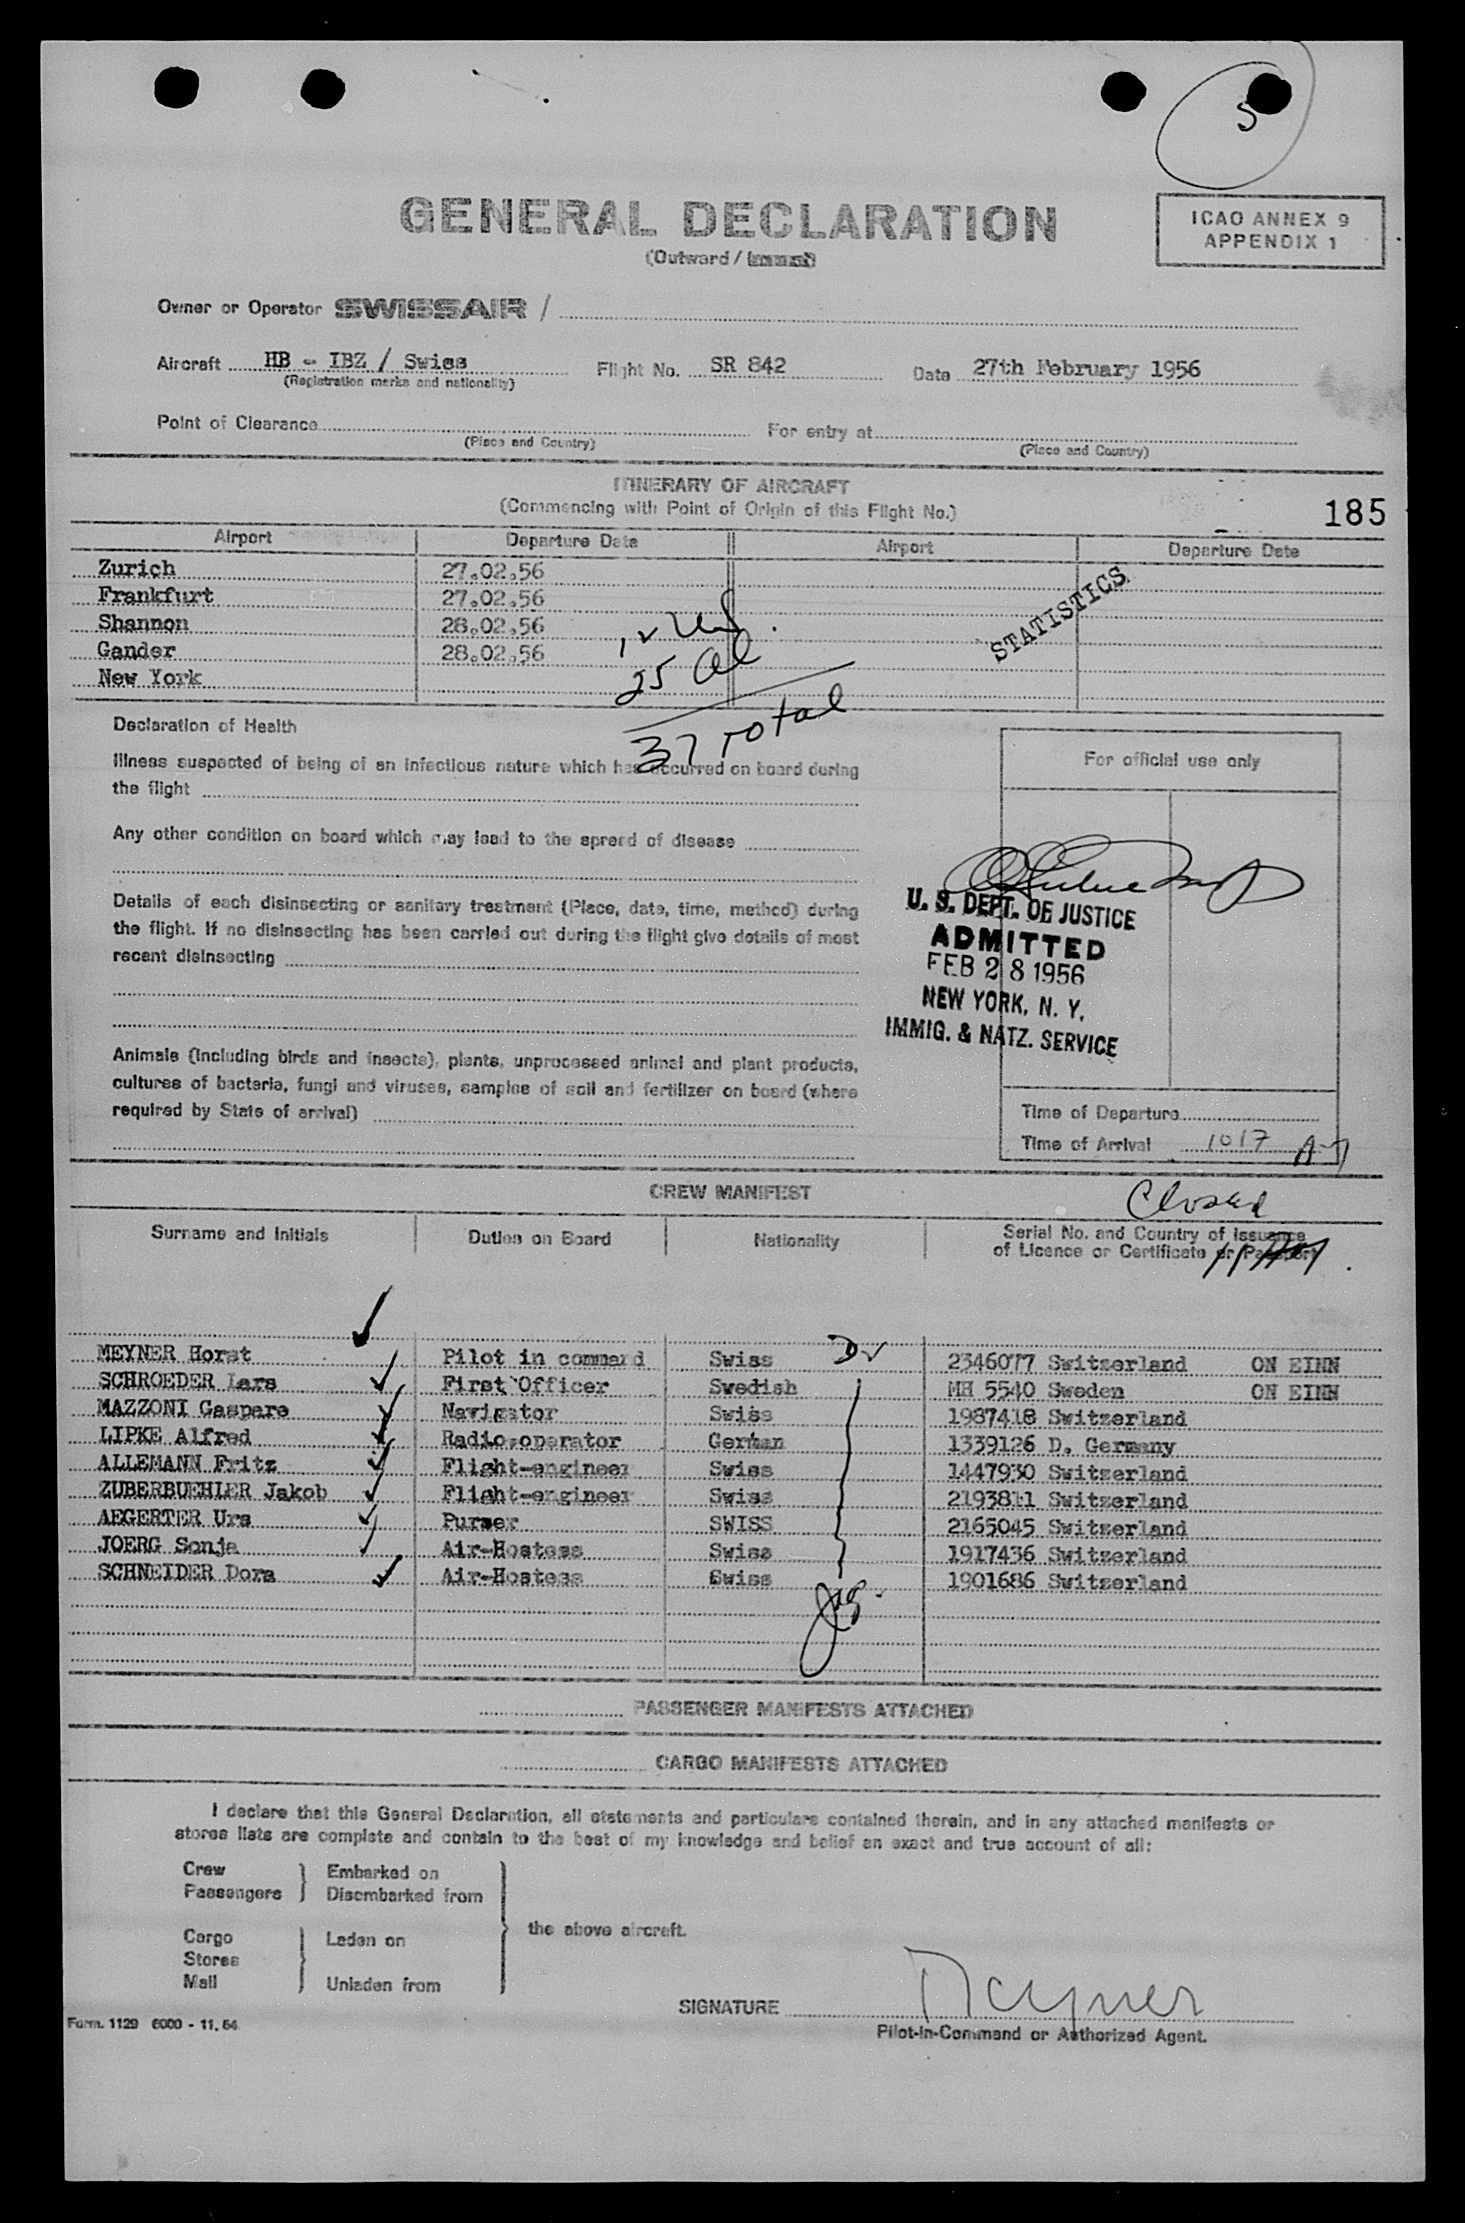 5
GENERAL DECLARATION
(Outward / Inward)
ICAO ANNEX 9
APPENDIX 1
Owner or Operator SWISSAIR /
Aircraft HB - IBZ / Swiss Flight No. SR 842 Date 27th February 1956
(Registration marks and nationality)
Point of Clearance For entry at
(Place and Country) (Place and Country)
ITINERARY OF AIRCRAFT
(Commencing with Point of Origin of this Flight No.)
185
Airport Departure Date Airport Departure Date
Zurich 27.02.56
Frankfurt 27.02.56
Shannon 28.02.56
Gander 28.02.56
New York
STATISTICS
12
25 al
37 Total
Declaration of Health
Illness suspected of being of an infectious nature which has occurred on board during
the flight
Any other condition on board which may lead to the spread of disease
Details of each disinsecting or sanitary treatment (Place, date, time, method) during
the flight. If no disinsecting has been carried out during the flight give details of most
recent disinsecting
Animals (including birds and insects), plants, unprocessed animal and plant products,
cultures of bacteria, fungi and viruses, samples of soil and fertilizer on board (where
required by State of arrival)
For official use only
U. S. DEPT. OF JUSTICE
ADMITTED
FEB 28 1956
NEW YORK, N. Y.
IMMIG. & NATZ. SERVICE
Time of Departure
Time of Arrival 1017 A
CREW MANIFEST
Closed
Surname and Initials Duties on Board Nationality Serial No. and Country of Issuance
of Licence or Certificate or Passport
MEYNER Horst Pilot in command Swiss 2346077 Switzerland ON EINN
SCHROEDER Lars First Officer Swedish MH 5540 Sweden ON EINN
MAZZONI Gaspare Navigator Swiss 1987418 Switzerland
LIPKE Alfred Radio-operator German 1339126 D. Germany
ALLEMANN Fritz Flight-engineer Swiss 1447930 Switzerland
ZUBERBUEHLER Jakob Flight-engineer Swiss 2193811 Switzerland
AEGERTER Urs Purser SWISS 2165045 Switzerland
JOERG Sonja Air-Hostess Swiss 1917436 Switzerland
SCHNEIDER Dora Air-Hostess Swiss 1901686 Switzerland
PASSENGER MANIFESTS ATTACHED
CARGO MANIFESTS ATTACHED
I declare that this General Declaration, all statements and particulars contained therein, and in any attached manifests or
stores lists are complete and contain to the best of my knowledge and belief an exact and true account of all:
Crew Embarked on
Passengers Disembarked from
the above aircraft.
Cargo Laden on
Stores
Mail Unladen from
SIGNATURE Meyner
Pilot-in-Command or Authorized Agent.
Form. 1129 6000 - 11. 54